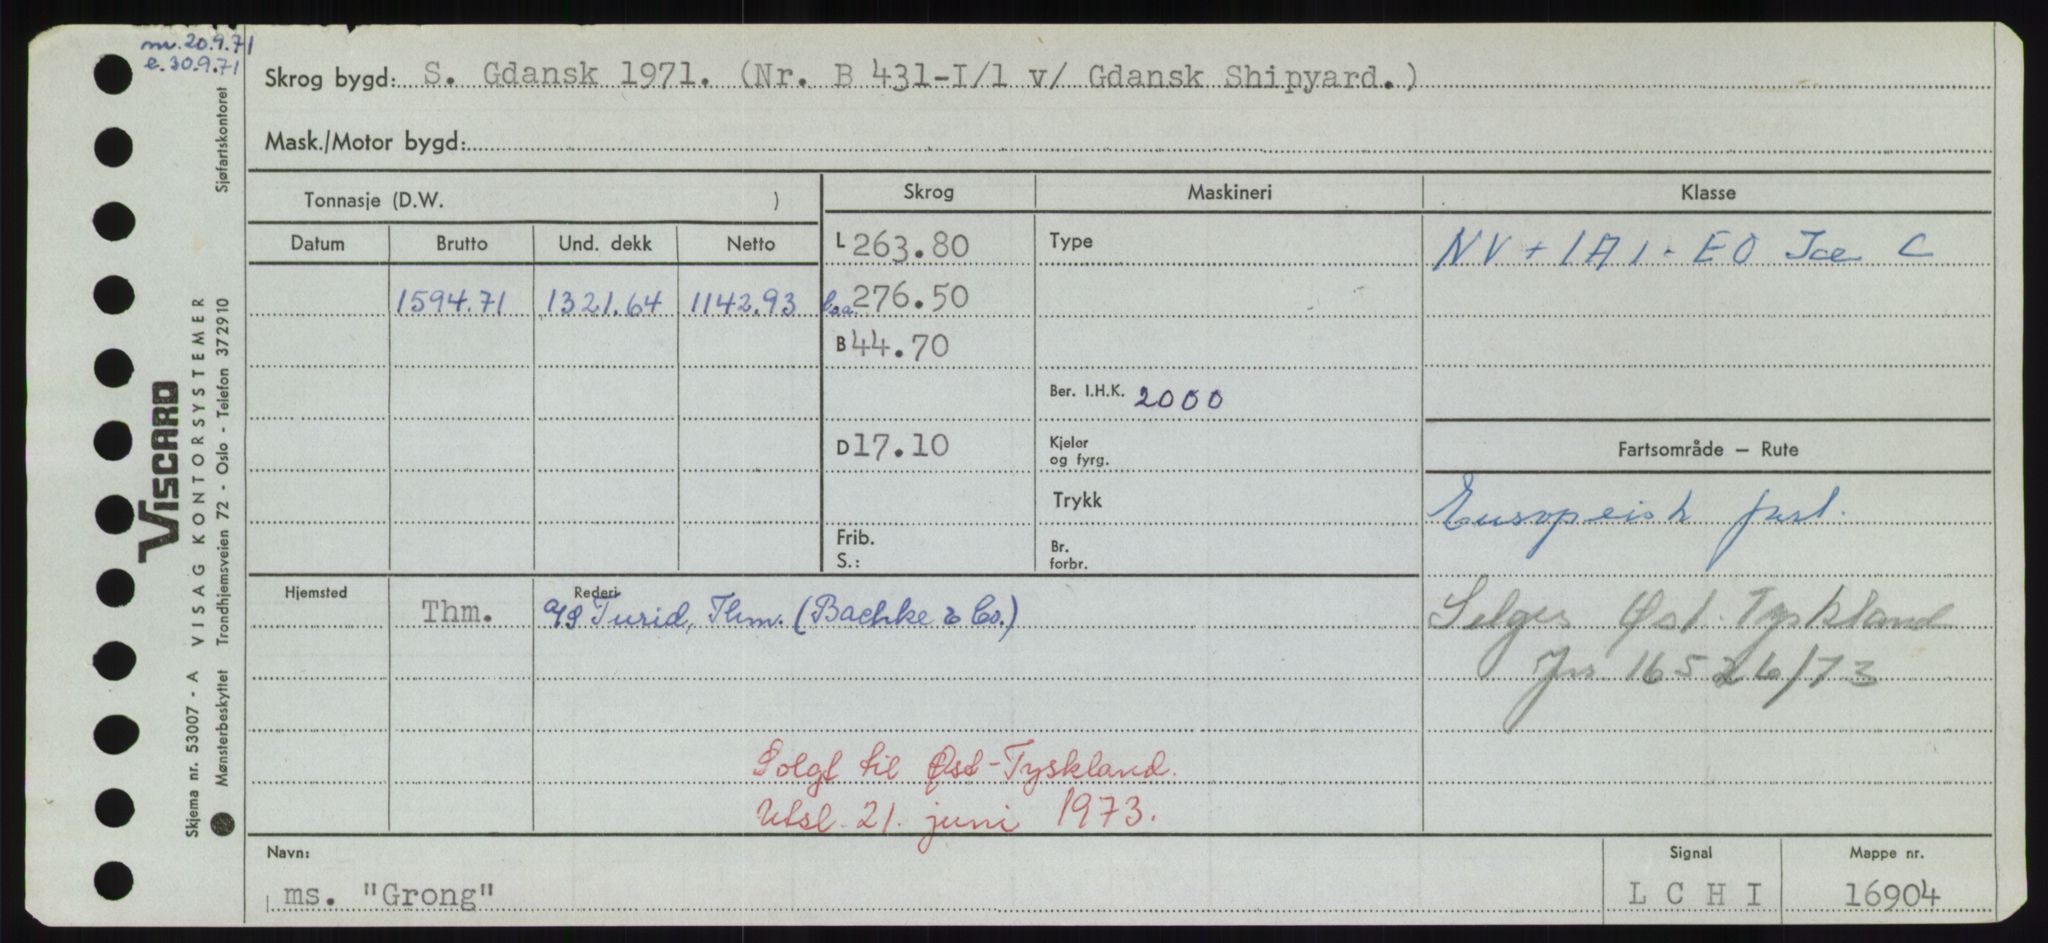 m. 20.9.71
e. 30.9.71
Skrog bygd: S. Gdansk 1971. (Nr. B 431-I/1 v/ Gdansk Shipyard.)
Mask./Motor bygd:
Tonnasje (D.W. )
Skrog
Maskineri
Klasse
Datum
Brutto
Und. dekk
Netto
L 263.80
Type
NV + 1A1 - EO Ice C
1594.71
1321.64
1142.93
l.o.a. 276.50
B 44.70
Ber. I.H.K. 2000
D 17.10
Kjeler
og fyrg.
Fartsområde — Rute
Trykk
Europeisk fart.
Frib.
S.:
Br.
forbr.
Hjemsted
Thm.
Rederi
a/s Turid, Thm. (Bachke & Co.)
Selges Øst-Tyskland
Jnr. 16526/73
Solgt til Øst-Tyskland.
Utsl. 21. juni 1973.
Navn:
ms. "Grong"
Signal
L C H I
Mappe nr.
16904
VISCARD
Skjema nr. 53007 - A VISAG KONTORSYSTEMER
Mønsterbeskyttet Trondhjemsveien 72 - Oslo - Telefon 372910 Sjøfartskontoret